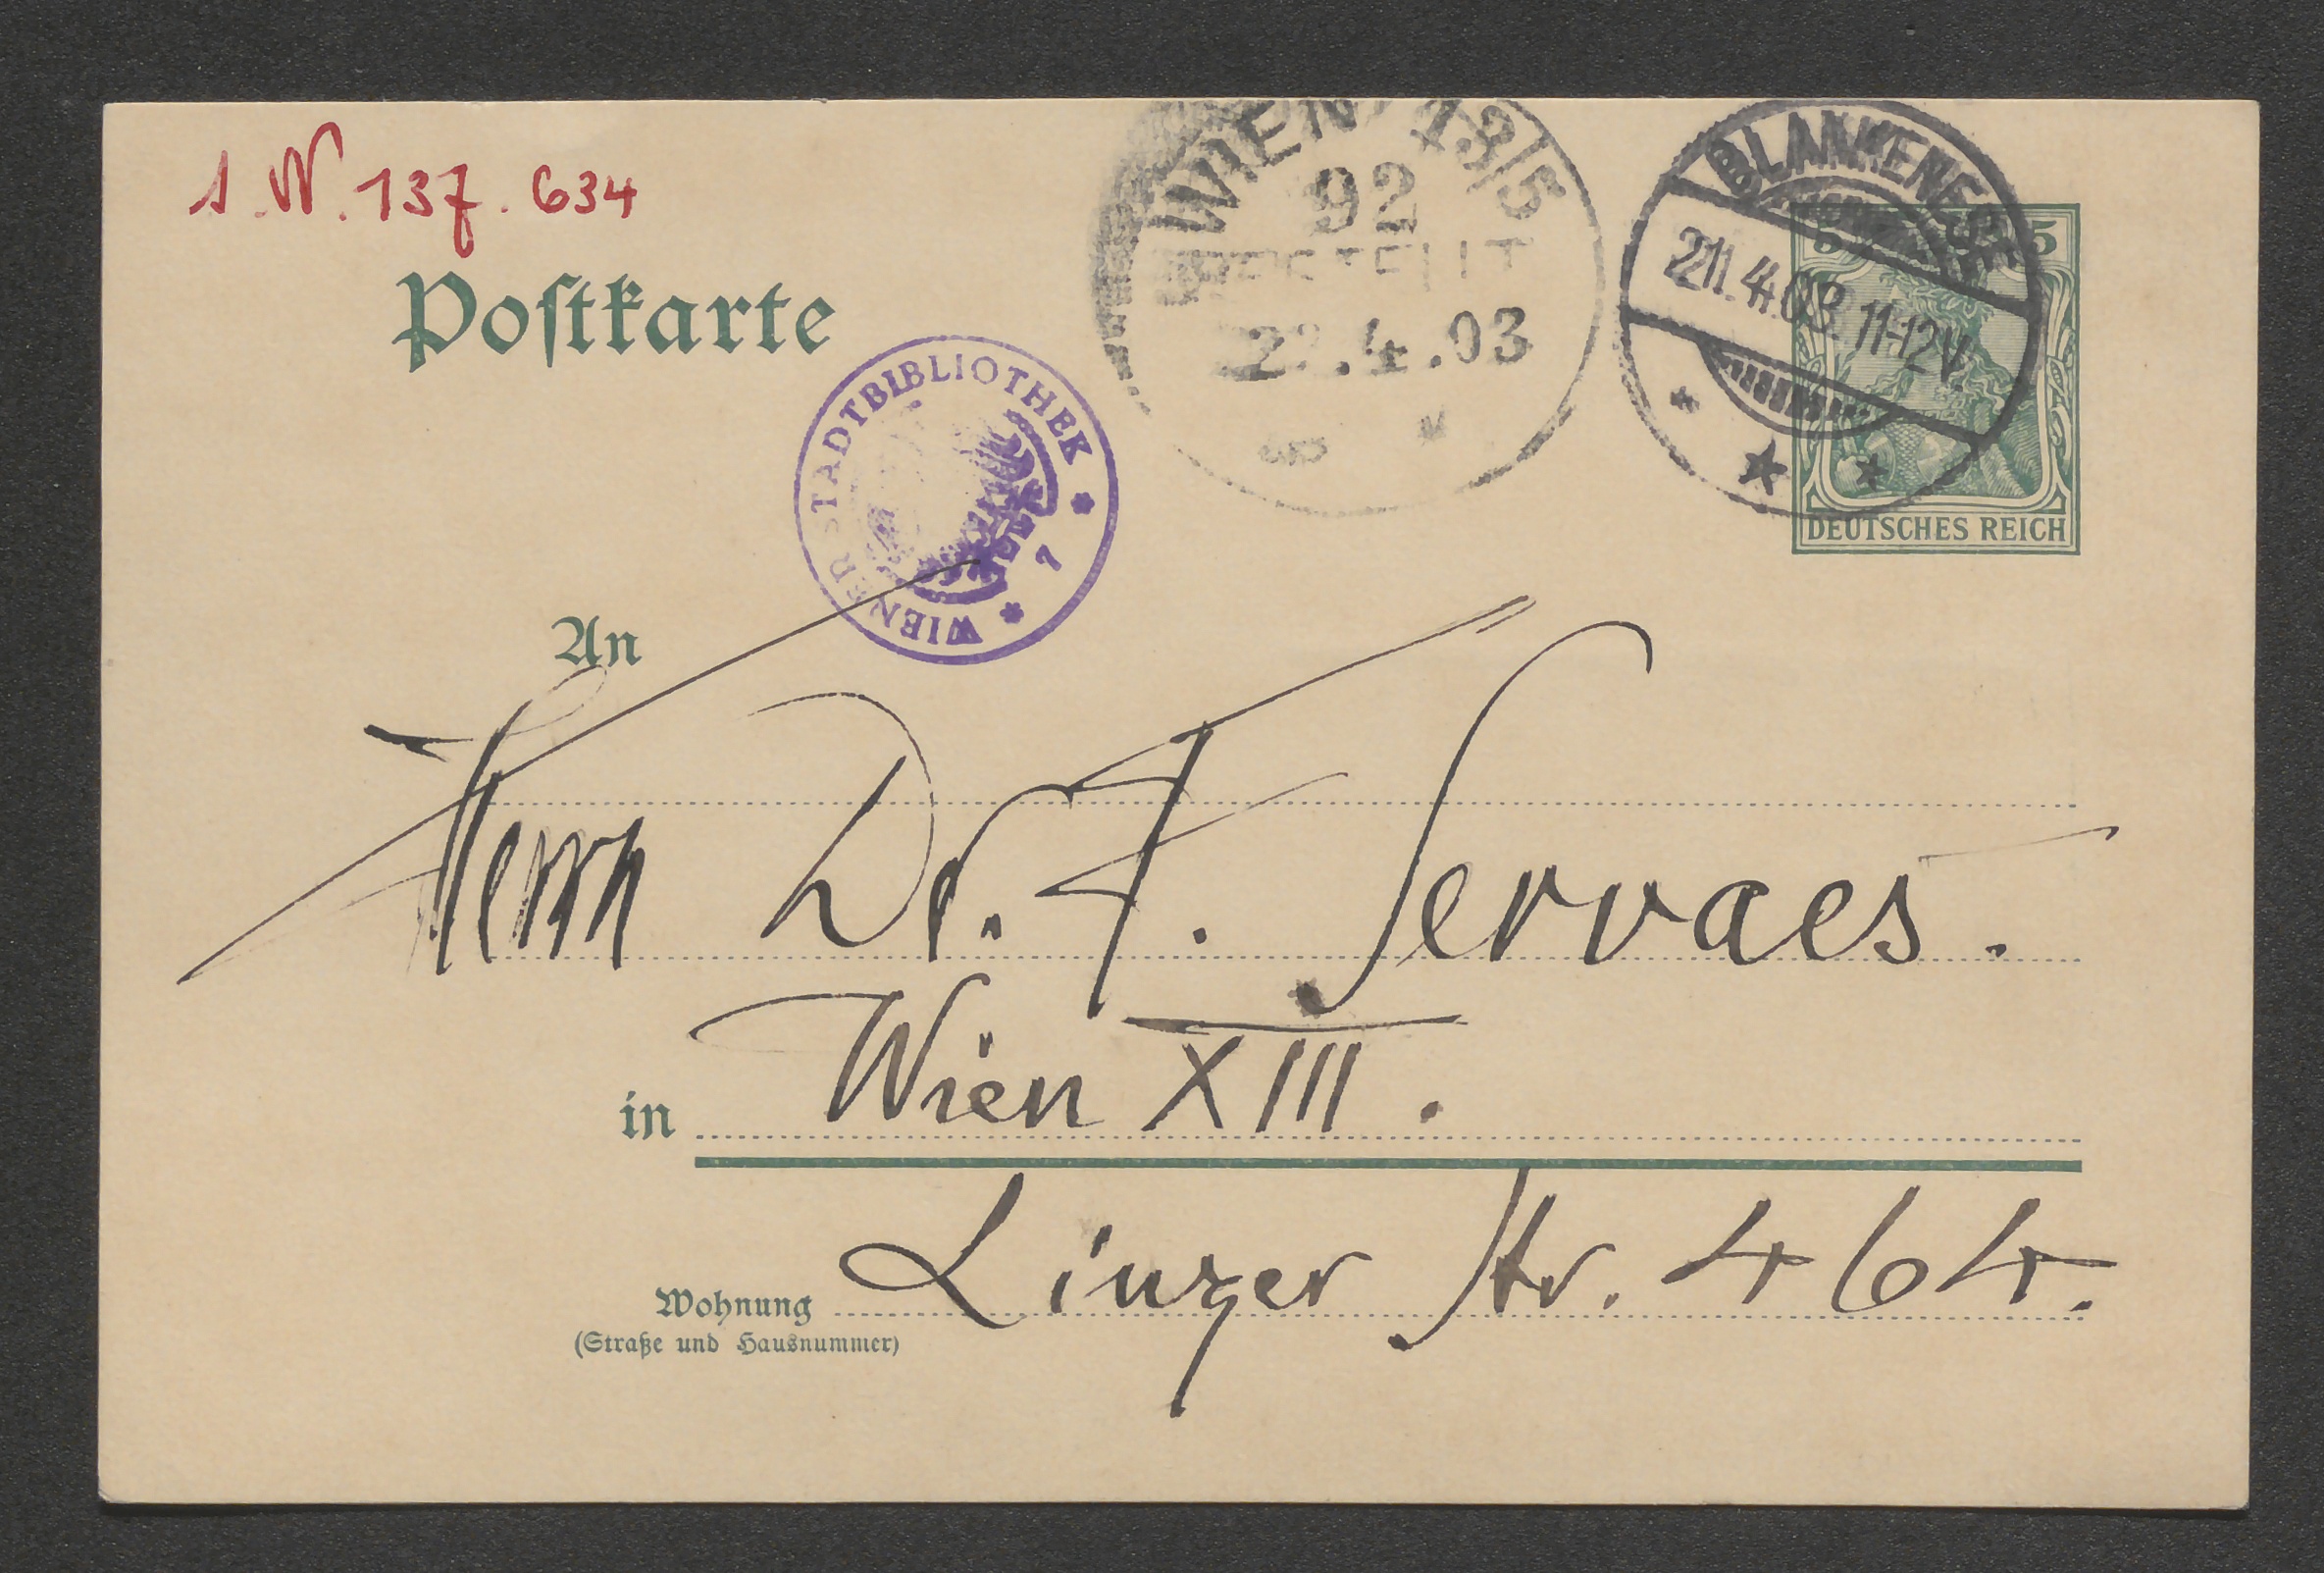 1.N.137.634
WIEN 13/5
92
BESTELLT
22.4.03
BLANKENESE
21.4.03. 11-12V.
5 5
DEUTSCHES REICH
Postkarte
WIENER STADTBIBLIOTHEK
7
An
Herrn Dr. F. Servaes.
in Wien XIII.
Wohnung Linzer Str. 464.
(Straße und Hausnummer)